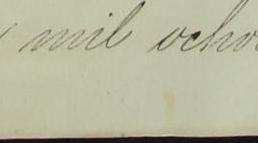 mil ocho